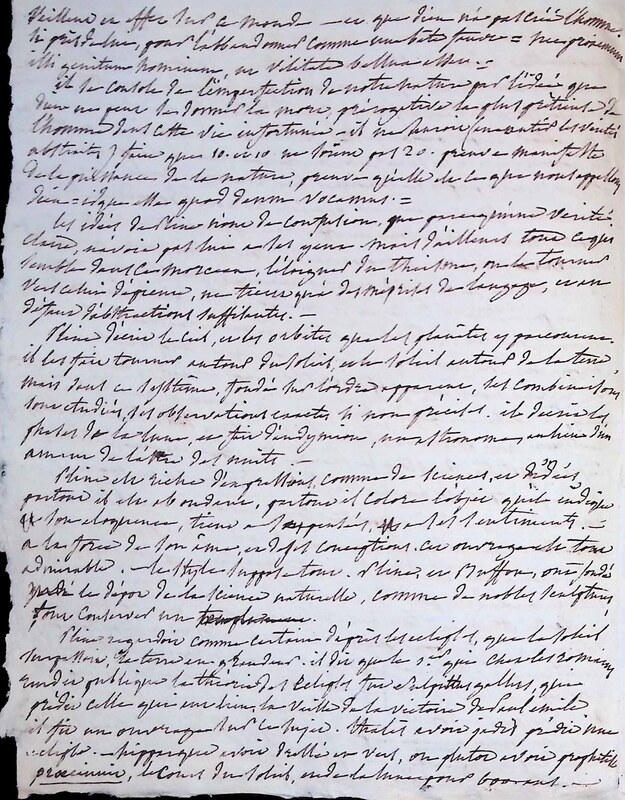 veillent en effet sur ce monde — et que dieu n'a pas créé l'homme
si près de lui, pour l'abandonner comme une bête fauve =
genitum hominem, ut vilitate belluis esset —
il se console de l'imperfection de notre nature par l'idée que
dieu ne peut se donner la mort, prérogative la plus précieuse de
l'homme dans cette vie infortunée — il ne sauroit les vérités
abstraites) faire que 10. et 10 ne soient pas 20. preuve manifeste
de la puissance de la nature, preuve qu'elle est ce que nous appellons
dieu = idque esse quod deum vocamus. =
les idées de Pline sont de confusion, que parce qu'une vérité
claire, n'avoit pas lui à ses yeux — mais d'ailleurs tout ce qui
semble dans ce morceau, s'éloigner du théisme, ou le tourner
vers celui d'épicure, ne tient qu'à des méprises de langage, et au
défaut d'abstractions suffisantes. —
Pline décrit le ciel, et les orbites que les planètes y parcourent.
il les fait tourner autour du soleil, et le soleil autour de la terre
mais dans ce système, fondé sur l'ordre apparent, ses combinaisons
sont étudiées, ses observations exactes si non précises. il décrit les
phases de la lune, et fait d'endymion, un astronome au lieu d'un
amant de l'astre des nuits —
Pline est riche d'expressions, comme de science, et d'idées,
partout il est abondant, partout il colore l'objet qu'il indique
son éloquence, tient à ses pensées, à ses sentiments. —
à la force de son âme, et de ses conceptions. cet ouvrage est tout
admirable. — le style suppose tout. Pline, et Buffon, ont fondé
le dépôt de la science naturelle, comme de nobles sculptures
pour conserver un
Pline regardoit comme certain d'après les eclipses, que le soleil
surpassoit, la terre en grandeur. il dit que le 1er qui chez les romains
rendit publique la théorie des eclipses fut Sulpitius gallus, qui
prédit celle qui eut lieu la veille de la victoire de paul emile
il fit un ouvrage sur ce sujet. thalès avoit jadis prédit une
eclipse. — hipparque avoit dressé en vers, ou plutot avoit prophétisé
praecinuit, le cours du soleil, et de la lune pour 600 ans. —